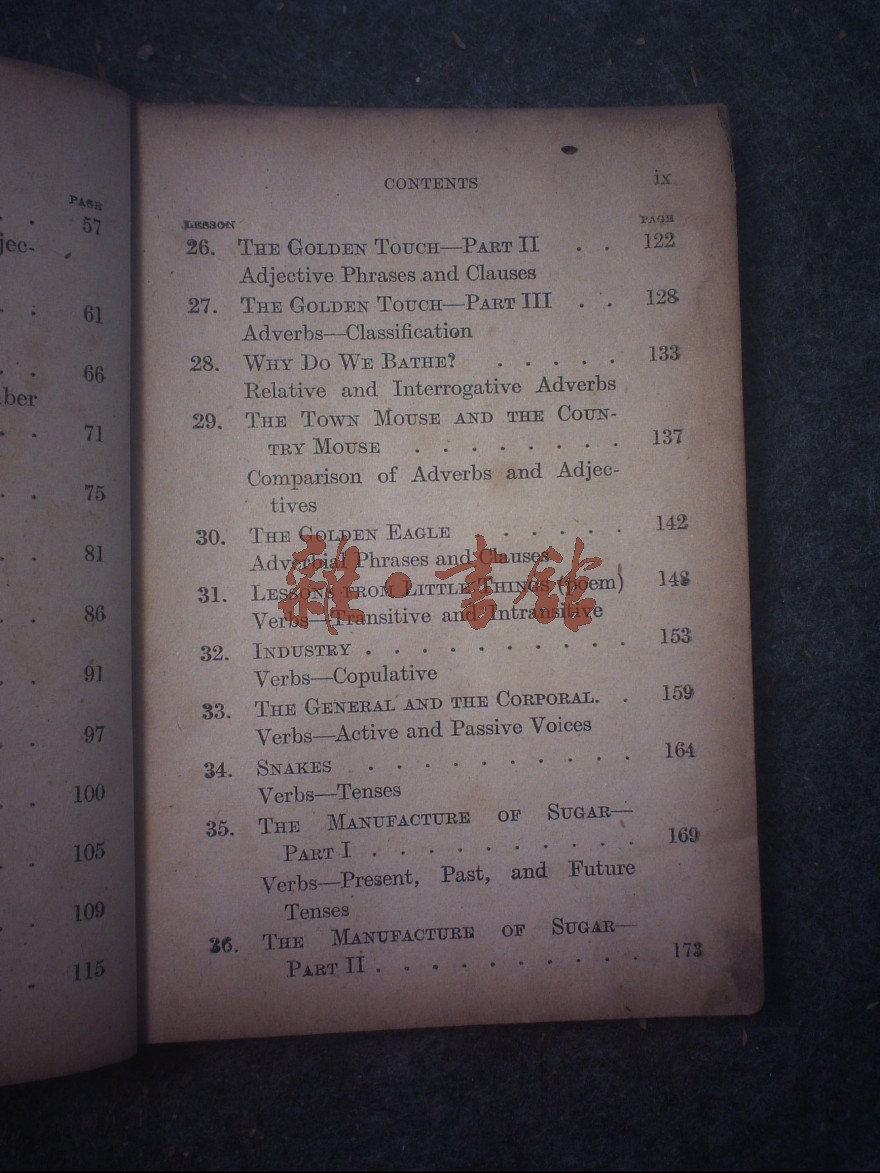 PAGE
57
jec-
61
66
ber
71
75
81
86
91
97
100
105
109
115
CONTENTS ix
LESSON PAGE
26. THE GOLDEN TOUCH—PART II . . 122
Adjective Phrases and Clauses
27. THE GOLDEN TOUCH—PART III . . 128
Adverbs—Classification
28. WHY DO WE BATHE? . . . . . 133
Relative and Interrogative Adverbs
29. THE TOWN MOUSE AND THE COUN-
TRY MOUSE . . . . . . . . 137
Comparison of Adverbs and Adjec-
tives
30. THE GOLDEN EAGLE . . . . . 142
Adverbial Phrases and Clauses
31. LESSONS FROM LITTLE THINGS (poem) 148
Verbs—Transitive and Intransitive
雜·書館
32. INDUSTRY . . . . . . . . . . 153
Verbs—Copulative
33. THE GENERAL AND THE CORPORAL. . 159
Verbs—Active and Passive Voices
34. SNAKES . . . . . . . . . . 164
Verbs—Tenses
35. THE MANUFACTURE OF SUGAR—
PART I . . . . . . . . . . 169
Verbs—Present, Past, and Future
Tenses
36. THE MANUFACTURE OF SUGAR—
PART II . . . . . . . . . . 173